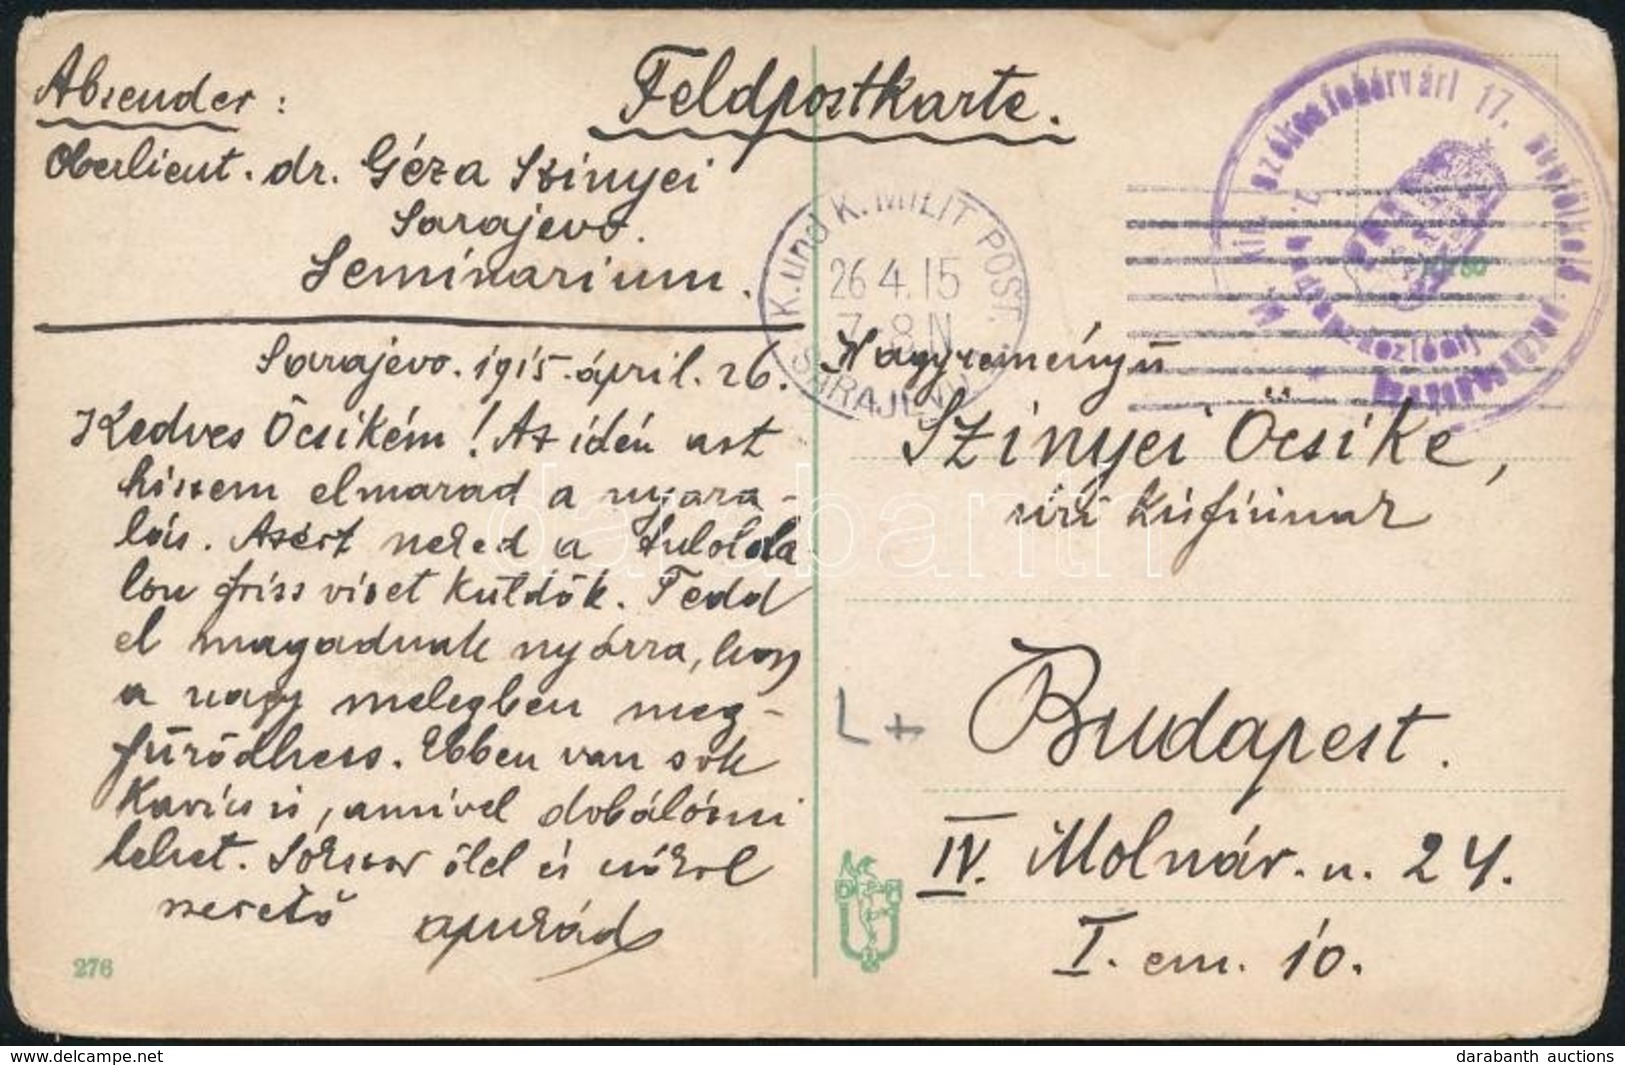 Absender:
Oberlieut. dr. Géza Szinyei
Sarajevo.
Seminarium.
Feldpostkarte.
K. und K. MILIT. POST.
26 4.15
7-8 N
SARAJEVO
M. kir. székesfehérvári 17. népfölkelő
Sarajevo. 1915. ápril. 26.
Kedves Öcsikém! Az idén azt
hiszem elmarad a nyara-
lás. Azért neked a
friss vizet küldök. Tedd
el magadnak nyárra, hogy
a nagy melegben meg-
fürödhess. Ebben van sok
kavics is, amivel dobálózni
lehet. Sokszor ölel és csókol
szerető apukád
Nagyreményű
Szinyei Öcsike,
úri kisfiúnak
Budapest.
IV. Molnár. u. 24.
I. em. 10.
L +
276
darabanth
www.delcampe.net
darabanth auctions